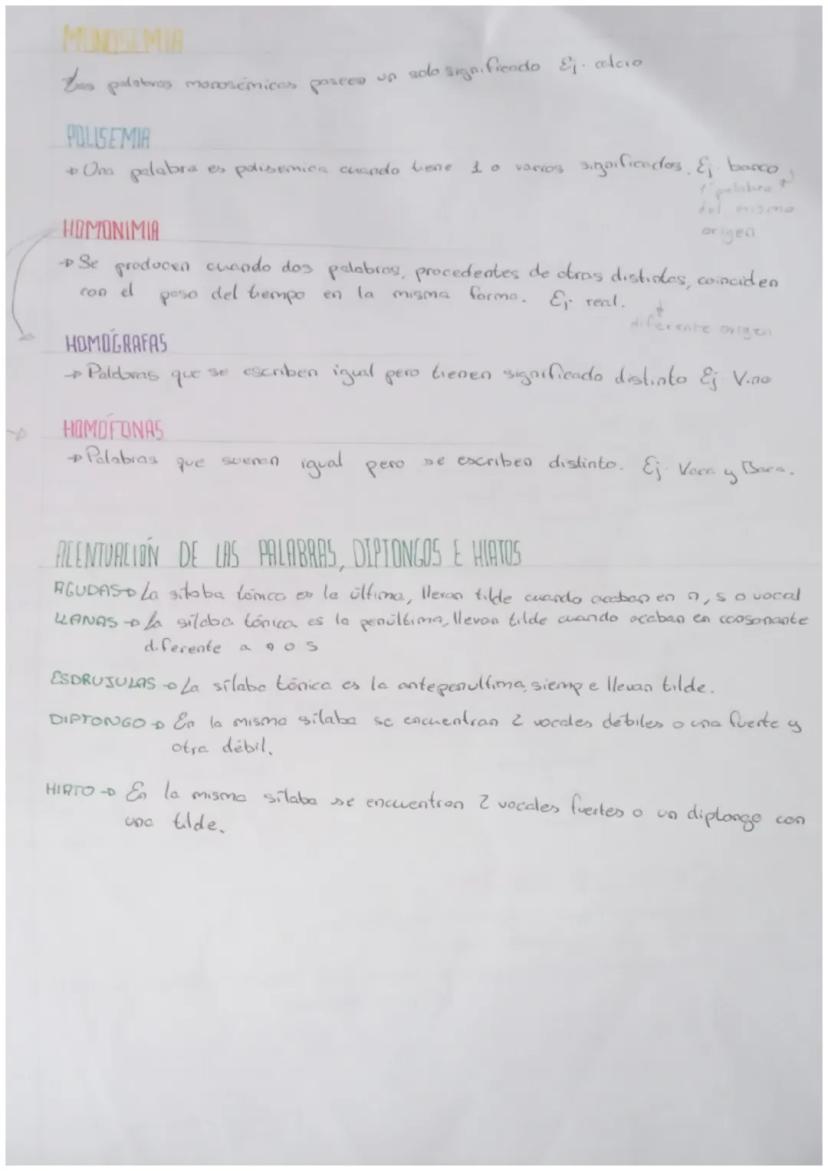 MONOSEMIA
Las palabras monosémicas poseen un solo significado Ej. calcio
POLISEMIA
→ Una palabra es polisemica cuando tiene 1 o varios significados. Ej banco
1 palabra
del mismo
origen
HOMONIMIA
→ Se producen cuando dos palabras, procedentes de otras distintas, coinciden
con el paso del tiempo en la misma forma. Ej. real.
diferente origen
HOMÓGRAFAS
→ Palabras que se escriben igual pero tienen significado distinto Ej Vino
HOMÓFONAS
→ Palabras que suenan igual pero se escriben distinto. Ej Vaca y Baca.
ACENTUACIÓN DE LAS PALABRAS, DIPTONGOS E HIATOS
AGUDAS → La sílaba tónica es la última, llevan tilde cuando acaban en n, s o vocal
LLANAS → La sílaba tónica es la penúltima, llevan tilde cuando acaban en consonante
diferente a n o s
ESDRUJULAS → La sílaba tónica es la antepenultima, siempe llevan tilde.
DIPTONGO → En la misma sílaba se encuentran 2 vocales débiles o una fuerte y
otra débil.
HIATO → En la misma sílaba se encuentran 2 vocales fuertes o un diptongo con
una tilde.